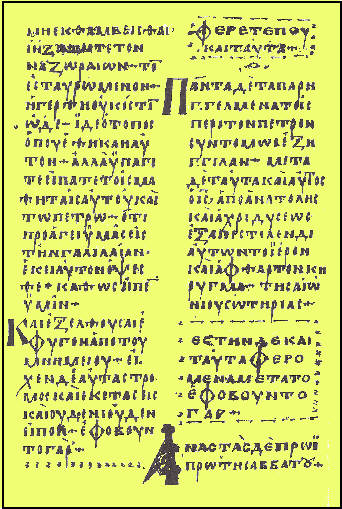 ΜΗΕΚΘΑΜΒΕΙϹΘΑΙ
ΙΝΖΗΤΕΙΤΕΤΟΝ
ΝΑΖΩΡΑΙΟΝ+ΤΟ
ΕϹΤΑΥΡΩΜΕΝΟΝ+
ΗΓΕΡΘΗΟΥΚΕϹΤΙ
ΩΔΕ+ΙΔΕΟΤΟΠΟϹ
ΟΠΟΥΕΘΗΚΑΝΑΥ
ΤΟΝ+ΑΛΛΑΥΠΑΓΕ
ΤΕΕΙΠΑΤΕΤΟΙϹΜΑ
ΘΗΤΑΙϹΑΥΤΟΥΚΑΙ
ΤΩΠΕΤΡΩ+ΟΤΙ
ΠΡΟΑΓΕΙΥΜΑϹΕΙϹ
ΤΗΝΓΑΛΙΛΑΙΑΝ+
ΕΚΕΙΑΥΤΟΝΟΨΕϹ
ΘΕ+ΚΑΘΩϹΕΙΠΕ
ΥΜΙΝ+
ΚΑΙΕΞΕΛΘΟΥϹΑΙΕ
ΦΥΓΟΝΑΠΟΤΟΥ
ΜΝΗΜΕΙΟΥ+ΕΙ
ΧΕΝΔΕΑΥΤΑϹΤΡΟ
ΜΟϹΚΑΙΕΚϹΤΑϹΕΙϹ
ΚΑΙΟΥΔΕΝΙΟΥΔΕΝ
ΕΙΠΟΝ+ΕΦΟΒΟΥΝ
ΤΟΓΑΡ+
ΦΕΡΕΤΕΠΟΥ
ΚΑΙΤΑΥΤΑ+
ΠΑΝΤΑΔΕΤΑΠΑΡΗ
ΓΓΕΛΜΕΝΑΤΟΙϹ
ΠΕΡΙΤΟΝΠΕΤΡΟΝ
ϹΥΝΤΟΜΩϹΕΞΗ
ΓΓΙΛΑΝ+ΜΕΤΑ
ΔΕΤΑΥΤΑΚΑΙΑΥΤΟϹ
ΟΙϹΑΠΟΑΝΑΤΟΛΗϹ
ΚΑΙΑΧΡΙΔΥϹΕΩϹ
ΕΞΑΠΕϹΤΙΛΕΝΔΙ
ΑΥΤΩΝΤΟΙΕΡΟΝ
ΚΑΙΑΦΘΑΡΤΟΝΚΗ
ΡΥΓΜΑ+ΤΗϹΑΙΩ
ΝΙΟΥϹΩΤΗΡΙΑϹ+
ΕϹΤΗΝΔΕΚΑΙ
ΤΑΥΤΑΦΕΡΟ
ΜΕΝΑΜΕΤΑΤΟ
ΕΦΟΒΟΥΝΤΟ
ΓΑΡ+
ΑΝΑϹΤΑϹΔΕΠΡΩΙ
ΠΡΩΤΗϹΑΒΒΑΤΟΥ+